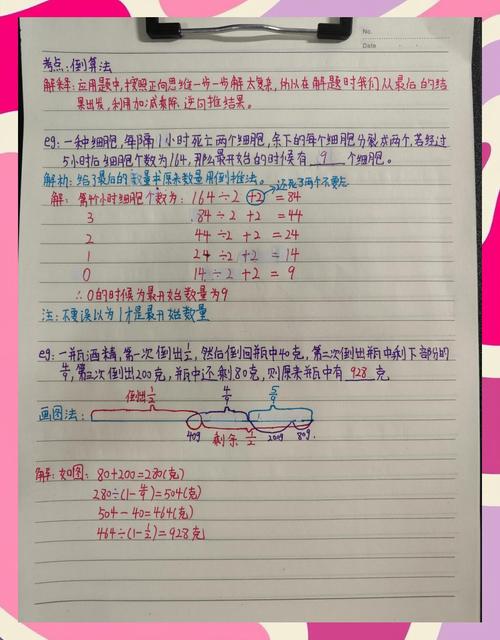 No.
Date
考点：倒算法
解释：应用题中，按照正向思维一步一步解太复杂，所以在解题时我们从最后的结
果出发，利用加减乘除逆向推结果。
eg：一种细胞，每隔1小时死亡两个细胞，余下的每个细胞分裂成两个，若经过
5小时后细胞个数为164，那么最开始的时候有 9 个细胞。
解析：给了最后的数量求原来数量用倒推法。 →还死了两个不要忘
解：第4小时细胞个数为：164÷2 +2 = 84
3 84÷2 +2 = 44
2 44÷2 +2 = 24
1 24÷2 +2 = 14
0 14÷2 +2 = 9
∴0的时候为最开始数量为9
注：不要误以为1才是最开始数量
eg：一瓶酒精，第一次倒出1/2，然后倒回瓶中40克，第二次倒出瓶中剩下部分的
4/9，第三次倒出200克，瓶中还剩80克，则原来瓶中有 928 克
画图法：
倒出1/2 4/9 5/9
40g 剩余1/2 200g 80g.
解：如图：80+200=280(克)
280÷(1-4/9)=504(克)
504-40=464(克)
464÷(1-1/2)=928克